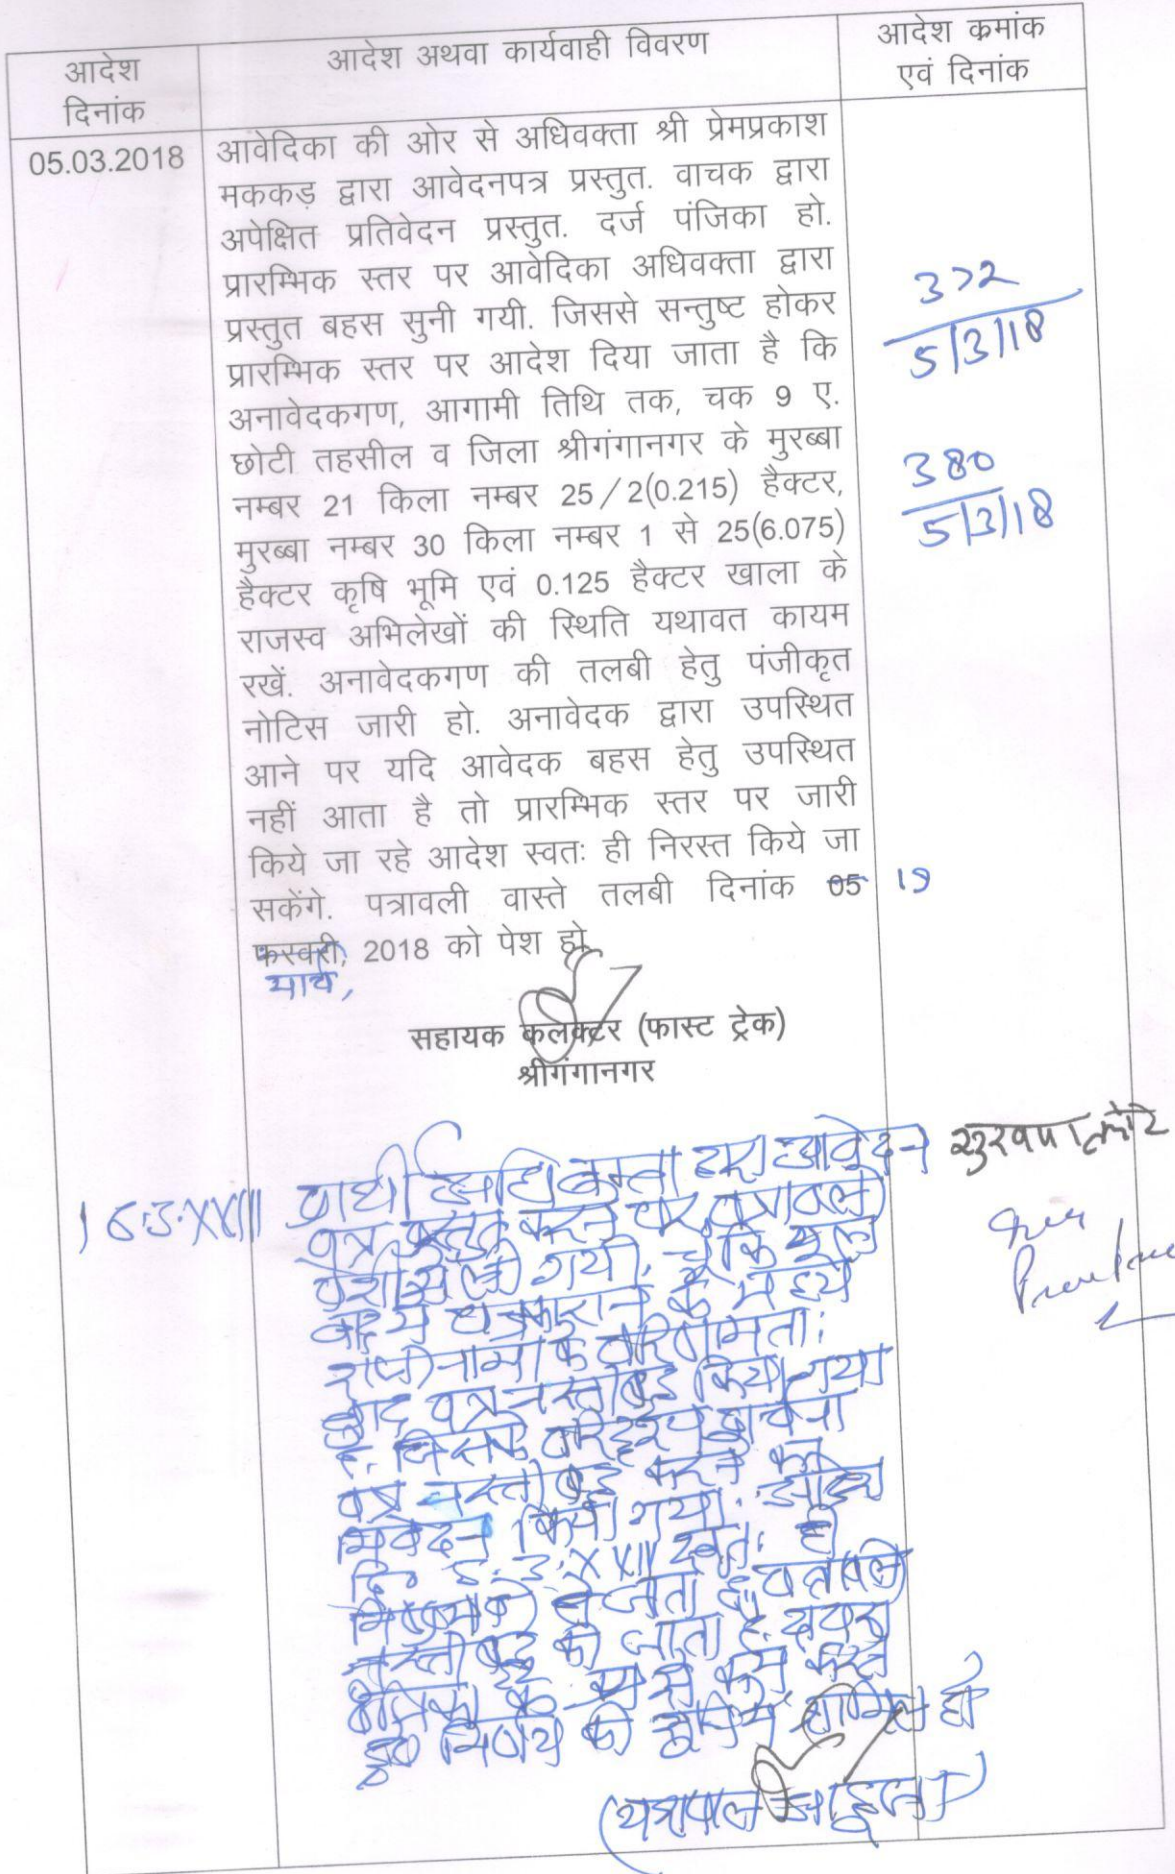 आदेश दिनांक
आदेश अथवा कार्यवाही विवरण
आदेश कमांक
एवं दिनांक
05.03.2018
आवेदिका की ओर से अधिवक्ता श्री प्रेमप्रकाश
मककड़ द्वारा आवेदनपत्र प्रस्तुत. वाचक द्वारा
अपेक्षित प्रतिवेदन प्रस्तुत. दर्ज पंजिका हो.
प्रारम्भिक स्तर पर आवेदिका अधिवक्ता द्वारा
प्रस्तुत बहस सुनी गयी. जिससे सन्तुष्ट होकर
प्रारम्भिक स्तर पर आदेश दिया जाता है कि
अनावेदकगण, आगामी तिथि तक, चक 9 ए.
छोटी तहसील व जिला श्रीगंगानगर के मुरब्बा
नम्बर 21 किला नम्बर 25/2(0.215) हैक्टर,
मुरब्बा नम्बर 30 किला नम्बर 1 से 25(6.075)
हैक्टर कृषि भूमि एवं 0.125 हैक्टर खाला के
राजस्व अभिलेखों की स्थिति यथावत कायम
रखें. अनावेदकगण की तलबी हेतु पंजीकृत
नोटिस जारी हो. अनावेदक द्वारा उपस्थित
आने पर यदि आवेदक बहस हेतु उपस्थित
नहीं आता है तो प्रारम्भिक स्तर पर जारी
किये जा रहे आदेश स्वतः ही निरस्त किये जा
सकेंगे. पत्रावली वास्ते तलबी दिनांक 05 19
फरवरी, 2018 को पेश हो
मार्च,
372
5/3/18
380
5/3/18
सहायक कलक्टर (फास्ट ट्रेक)
श्रीगंगानगर
प्रार्थी अधिवक्ता द्वारा आवेदन
पत्र प्रस्तुत करने पर पत्रावली
पेशी से ली गयी. चूंकि मूल
वाद में पक्षकारान के मध्य
राजीनामा के परिणामतः
वाद पत्र नस्तीबद्ध किया गया
है. जिसके परिदृश्य
पत्र नस्तीबद्ध करने का
निवेदन किया गया. आदेश
दि० 5.3.XVIII स्वतः ही
हो जाता है पत्रावली
नस्तीबद्ध की जाती है.
से कम करते
हुए निर्णय की शामिल हो